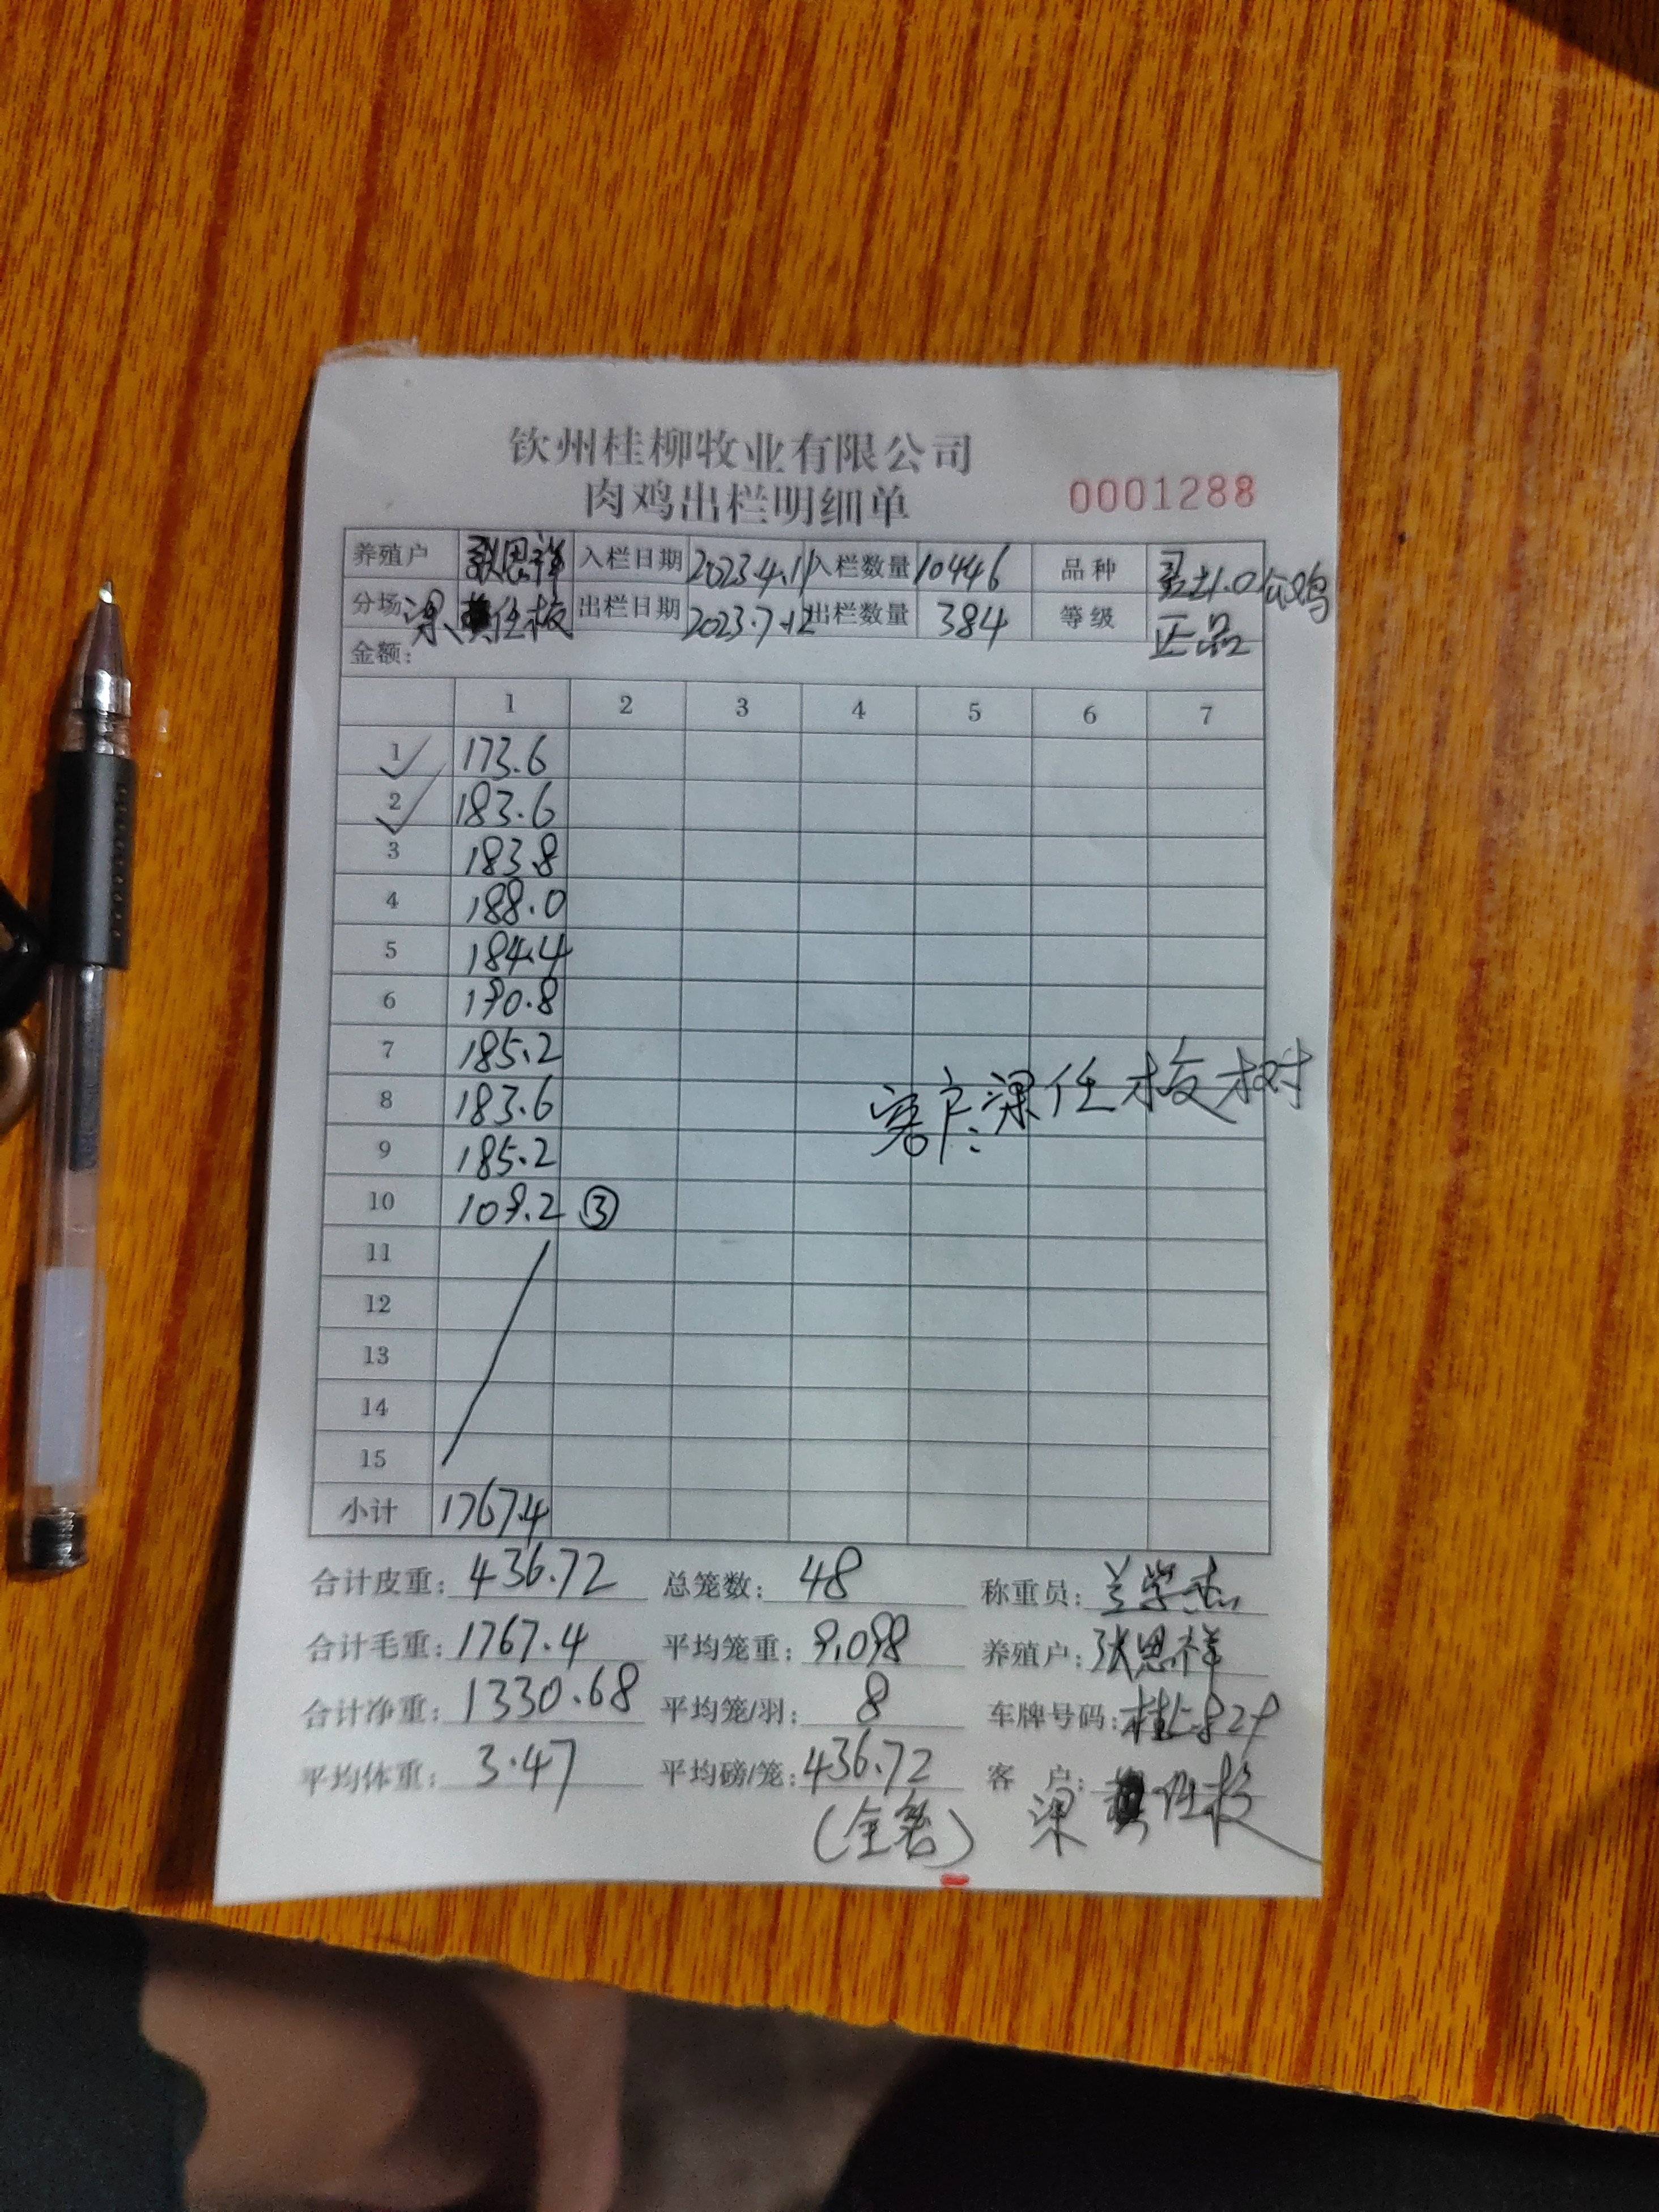 钦州桂柳牧业有限公司
肉鸡出栏明细单 0001288
养殖户 张恩祥 入栏日期 2023.4.11 入栏数量 10446 品种 1.0 鸡
分场 梁 任板 出栏日期 2023.7.12 出栏数量 384 等级 正品
金额:
1 2 3 4 5 6 7
1 173.6
2 183.6
3 183.8
4 188.0
5 184.4
6 190.8
7 185.2
8 183.6
客户:梁任板树
9 185.2
10 109.2 ③
11
12
13
14
15
小计 1767.4
合计皮重: 436.72 总笼数: 48 称重员: 兰学杰
合计毛重: 1767.4 平均笼重: 9.098 养殖户: 张恩祥
合计净重: 1330.68 平均笼/羽: 8 车牌号码: 桂 829
平均体重: 3.47 平均磅/笼: 436.72 客 户: 梁 任板
(全笼)